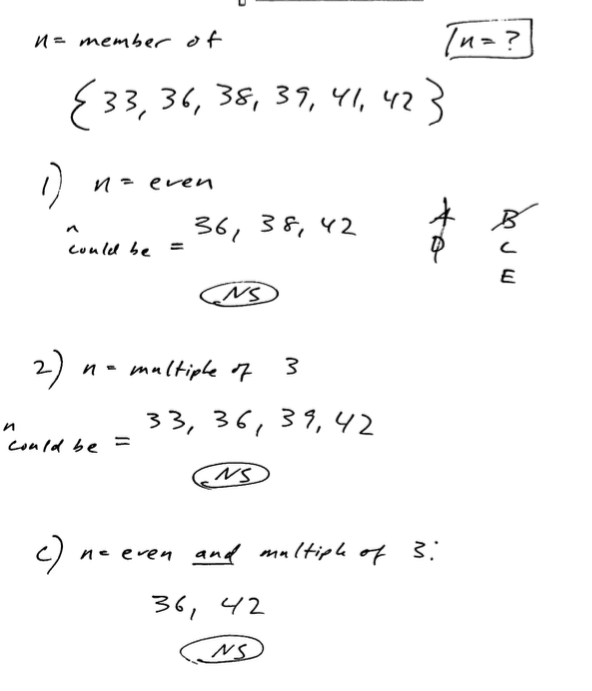 n = member of
n = ?
{33, 36, 38, 39, 41, 42}
1) n = even
n could be = 36, 38, 42
A B
D C
E
NS
2) n = multiple of 3
n could be = 33, 36, 39, 42
NS
c) n = even and multiple of 3:
36, 42
NS